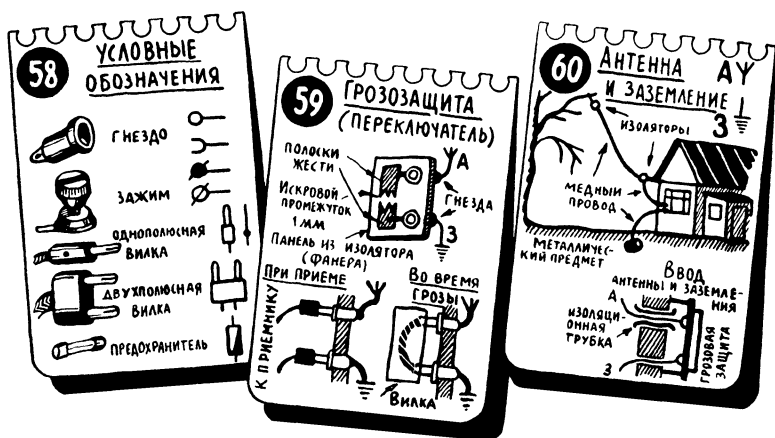 58
УСЛОВНЫЕ
ОБОЗНАЧЕНИЯ
ГНЕЗДО
ЗАЖИМ
ОДНОПОЛЮСНАЯ
ВИЛКА
ДВУХПОЛЮСНАЯ
ВИЛКА
ПРЕДОХРАНИТЕЛЬ
59
ГРОЗОЗАЩИТА
(ПЕРЕКЛЮЧАТЕЛЬ)
ПОЛОСКИ
ЖЕСТИ
А
ИСКРОВОЙ
ПРОМЕЖУТОК
1 ММ
ГНЕЗДА
З
ПАНЕЛЬ ИЗ ИЗОЛЯТОРА
(ФАНЕРА)
ПРИ ПРИЕМЕ
ВО ВРЕМЯ
ГРОЗЫ
К ПРИЕМНИКУ
ВИЛКА
60
АНТЕННА
И ЗАЗЕМЛЕНИЕ
А
З
ИЗОЛЯТОРЫ
МЕДНЫЙ
ПРОВОД
МЕТАЛЛИЧЕС-
КИЙ ПРЕДМЕТ
ВВОД
АНТЕННЫ И ЗАЗЕМЛЕ-
НИЯ
А
ИЗОЛЯЦИ-
ОННАЯ
ТРУБКА
З
ГРОЗОВАЯ
ЗАЩИТА